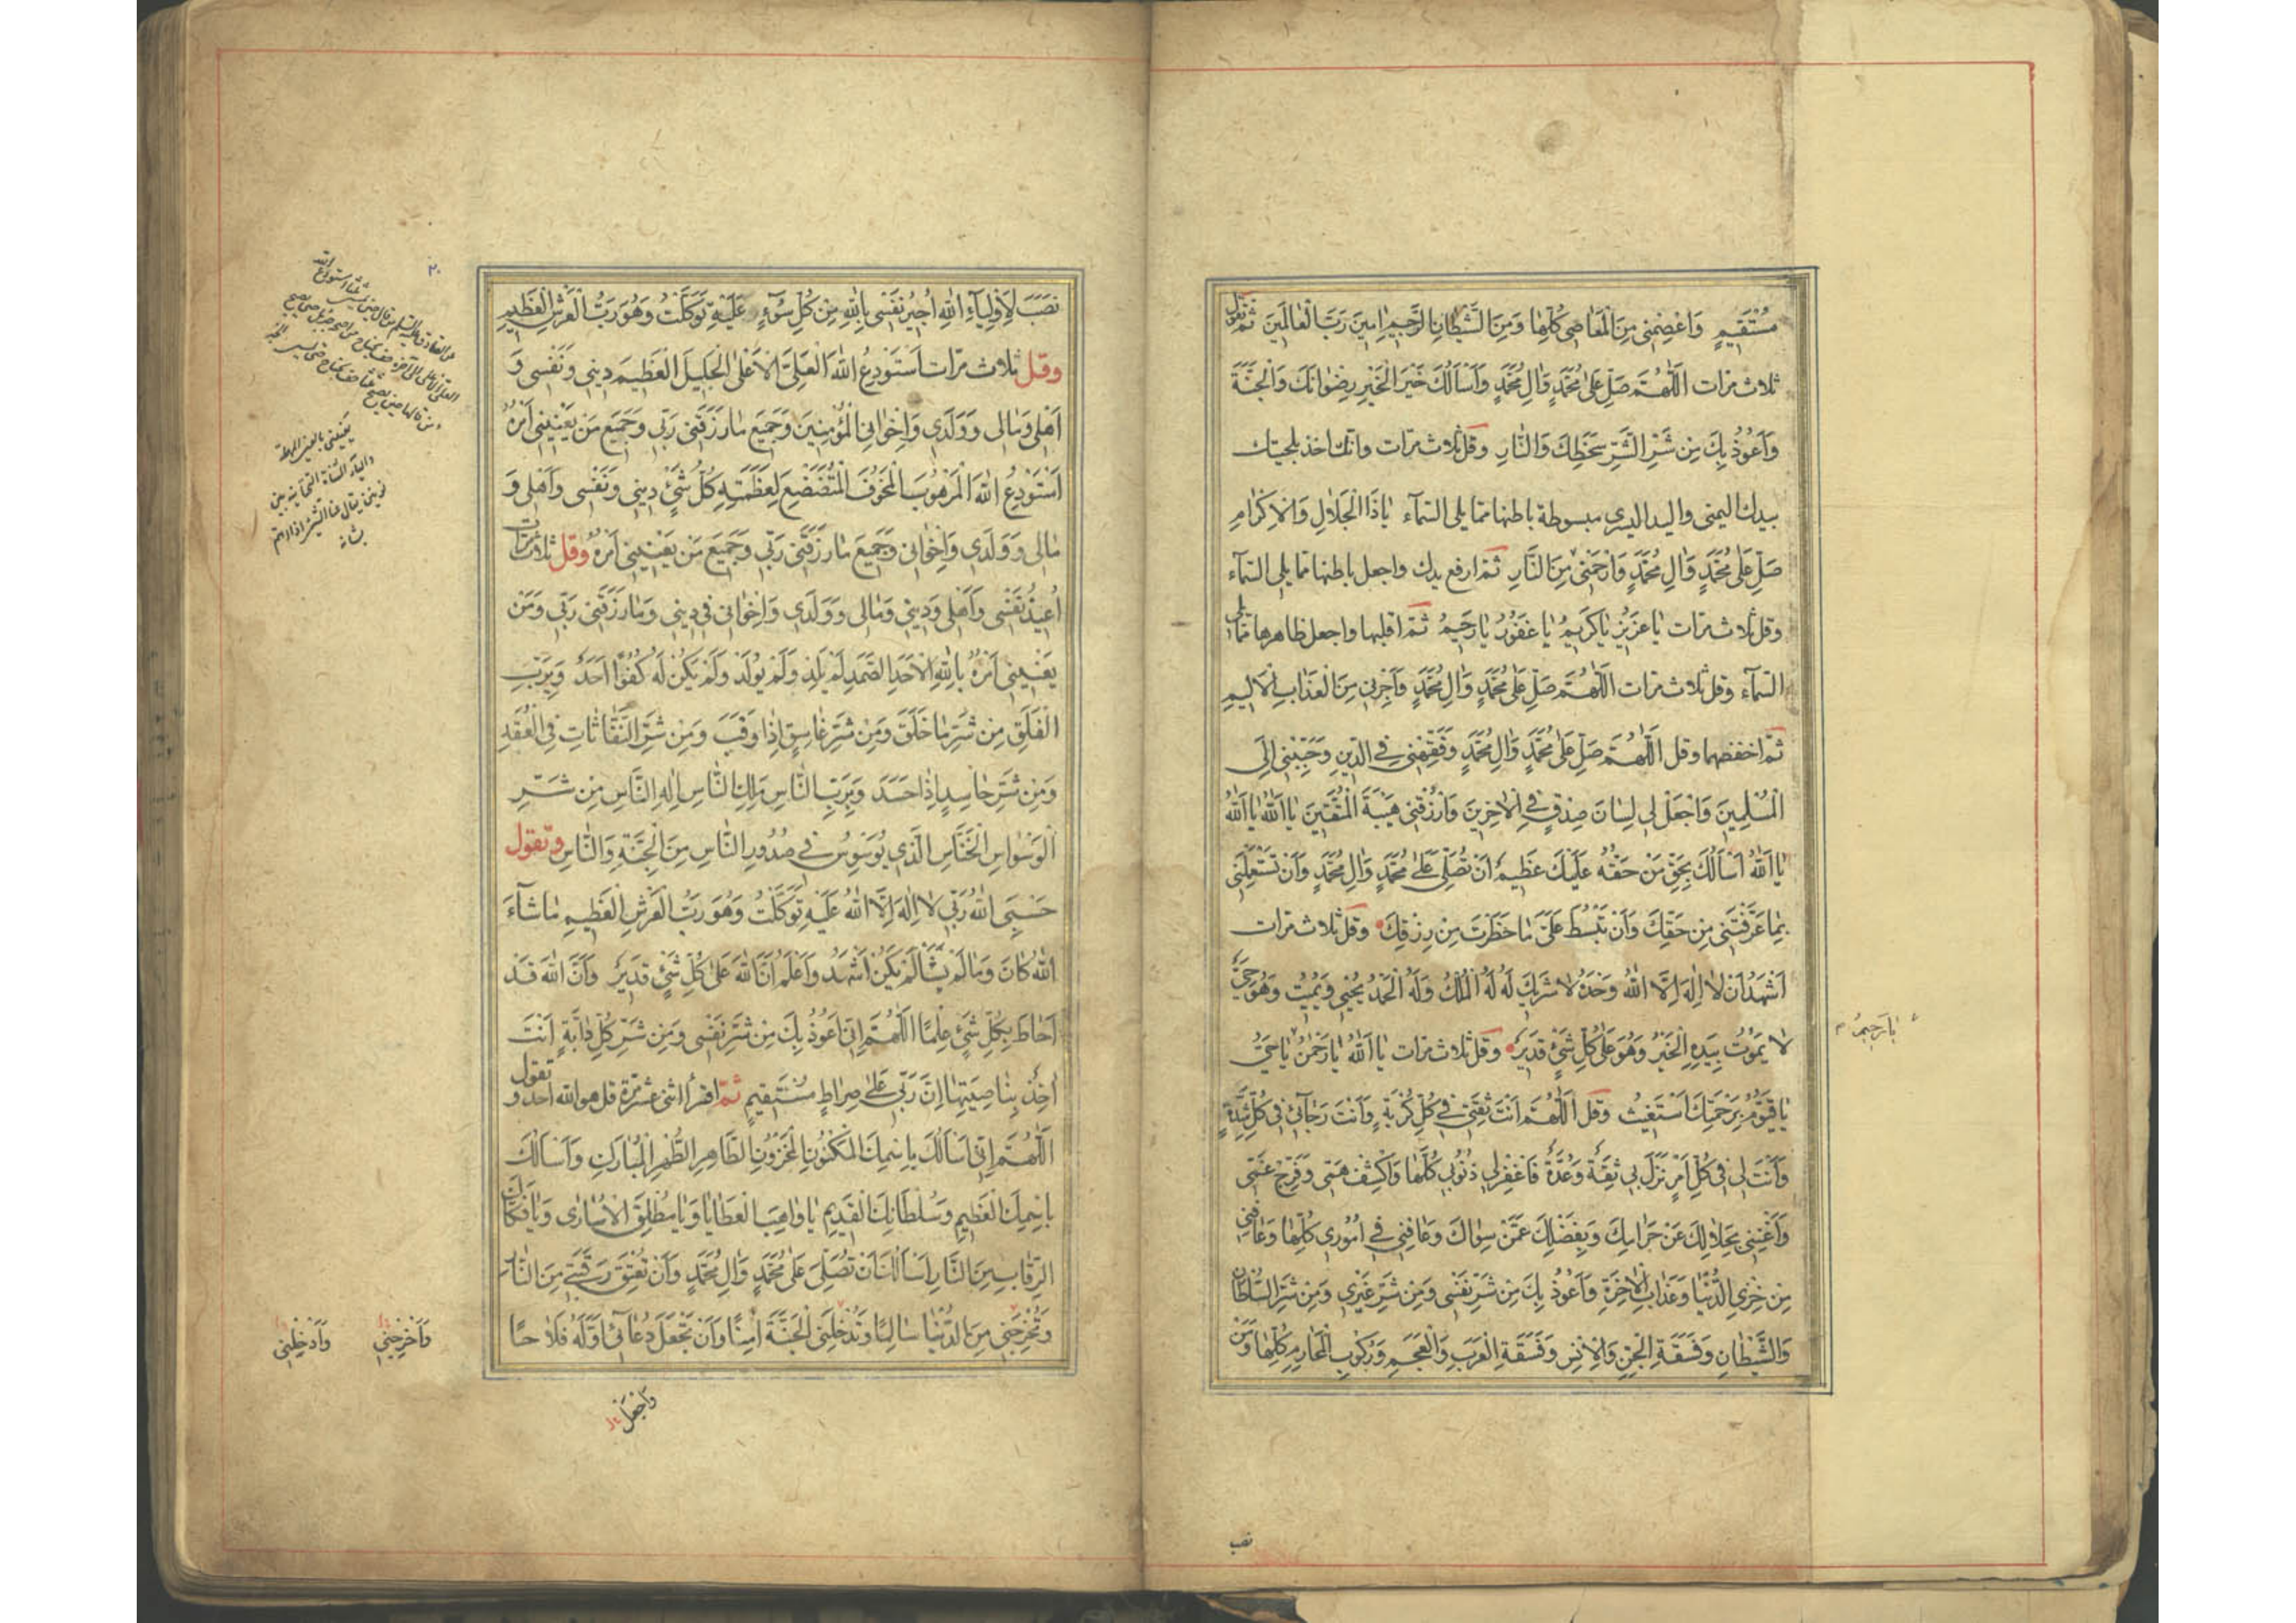 مُسْتَقِيمٍ وَاعْصِمْنِي مِنَ الْمَعَاصِي كُلِّهَا وَمِنَ الشَّيْطَانِ الرَّجِيمِ اٰمِينَ رَبَّ الْعَالَمِينَ ثُمَّ تقول
ثلاث مرات اَللّٰهُمَّ صَلِّ عَلٰى مُحَمَّدٍ وَاٰلِ مُحَمَّدٍ وَاَسْاَلُكَ خَيْرَ الْخَيْرِ رِضْوَانَكَ وَالْجَنَّةَ
وَاَعُوذُ بِكَ مِنْ شَرِّ الشَّرِّ سَخَطِكَ وَالنَّارِ وقل ثلاث مرات وانت اخذ بلحيتك
بيدك اليمنى واليد اليسرى مبسوطة باطنها مما يلى السماء يَاذَا الْجَلَالِ وَالْاِكْرَامِ
صَلِّ عَلٰى مُحَمَّدٍ وَاٰلِ مُحَمَّدٍ وَارْحَمْنِي مِنَ النَّارِ ثم ارفع يدك واجعل باطنها مما يلى السماء
وقل ثلاث مرات يَا عَزِيزُ يَا كَرِيمُ يَا غَفُورُ يَا رَحِيمُ ثم اقلبها واجعل ظاهرها مما يلى
السماء وقل ثلاث مرات اَللّٰهُمَّ صَلِّ عَلٰى مُحَمَّدٍ وَاٰلِ مُحَمَّدٍ وَاَجِرْنِي مِنَ الْعَذَابِ الْاَلِيمِ
ثم اخفضهما وقل اَللّٰهُمَّ صَلِّ عَلٰى مُحَمَّدٍ وَاٰلِ مُحَمَّدٍ وَفَقِّهْنِي فِي الدِّينِ وَحَبِّبْنِي اِلَى
الْمُسْلِمِينَ وَاجْعَلْ لِي لِسَانَ صِدْقٍ فِي الْاٰخِرِينَ وَارْزُقْنِي هَيْبَةَ الْمُتَّقِينَ يَا اَللّٰهُ يَا اَللّٰهُ
يَا اَللّٰهُ اَسْاَلُكَ بِحَقِّ مَنْ حَقُّهُ عَلَيْكَ عَظِيمٌ اَنْ تُصَلِّيَ عَلٰى مُحَمَّدٍ وَاٰلِ مُحَمَّدٍ وَاَنْ تَسْتَعْمِلَنِي
بِمَا عَرَّفْتَنِي مِنْ حَقِّكَ وَاَنْ تَبْسُطَ عَلَيَّ مَا حَظَرْتَ مِنْ رِزْقِكَ وقل ثلاث مرات
اَشْهَدُ اَنْ لَا اِلٰهَ اِلَّا اللّٰهُ وَحْدَهُ لَا شَرِيكَ لَهُ لَهُ الْمُلْكُ وَلَهُ الْحَمْدُ يُحْيِي وَيُمِيتُ وَهُوَ حَيٌّ
لَا يَمُوتُ بِيَدِهِ الْخَيْرُ وَهُوَ عَلٰى كُلِّ شَيْءٍ قَدِيرٌ وقل ثلاث مرات يَا اَللّٰهُ يَا رَحْمٰنُ يَا حَيُّ
يَا رَحِيمُ
يَا قَيُّومُ بِرَحْمَتِكَ اَسْتَغِيثُ وقل اَللّٰهُمَّ اَنْتَ ثِقَتِي فِي كُلِّ كُرْبَةٍ وَاَنْتَ رَجَائِي فِي كُلِّ شِدَّةٍ
وَاَنْتَ لِي فِي كُلِّ اَمْرٍ نَزَلَ بِي ثِقَةٌ وَعُدَّةٌ فَاغْفِرْ لِي ذُنُوبِي كُلَّهَا وَاكْشِفْ هَمِّي وَفَرِّجْ غَمِّي
وَاَغْنِنِي بِحَلَالِكَ عَنْ حَرَامِكَ وَبِفَضْلِكَ عَمَّنْ سِوَاكَ وَعَافِنِي فِي اُمُورِي كُلِّهَا وَعَافِنِي
مِنْ خِزْيِ الدُّنْيَا وَعَذَابِ الْاٰخِرَةِ وَاَعُوذُ بِكَ مِنْ شَرِّ نَفْسِي وَمِنْ شَرِّ غَيْرِي وَمِنْ شَرِّ السُّلْطَانِ
وَالشَّيْطَانِ وَفَسَقَةِ الْجِنِّ وَالْاِنْسِ وَفَسَقَةِ الْعَرَبِ وَالْعَجَمِ وَرُكُوبِ الْمَحَارِمِ كُلِّهَا وَمَنْ
نصب
نَصَبَ لِاَوْلِيَاءِ اللّٰهِ اُجِيرُ نَفْسِي بِاللّٰهِ مِنْ كُلِّ سُوءٍ عَلَيْهِ تَوَكَّلْتُ وَهُوَ رَبُّ الْعَرْشِ الْعَظِيمِ
وقل ثلاث مرات اَسْتَوْدِعُ اللّٰهَ الْعَلِيَّ الْاَعْلٰى الْجَلِيلَ الْعَظِيمَ دِينِي وَنَفْسِي وَ
اَهْلِي وَمَالِي وَوَلَدِي وَاِخْوَانِي الْمُؤْمِنِينَ وَجَمِيعَ مَا رَزَقَنِي رَبِّي وَجَمِيعَ مَنْ يَعْنِينِي اَمْرُهُ
اَسْتَوْدِعُ اللّٰهَ الْمَرْهُوبَ الْمَخُوفَ الْمُتَضَعْضِعَ لِعَظَمَتِهِ كُلُّ شَيْءٍ دِينِي وَنَفْسِي وَاَهْلِي وَ
مَالِي وَوَلَدِي وَاِخْوَانِي وَجَمِيعَ مَا رَزَقَنِي رَبِّي وَجَمِيعَ مَنْ يَعْنِينِي اَمْرُهُ وقل ثلاث مرات
اُعِيذُ نَفْسِي وَاَهْلِي وَدِينِي وَمَالِي وَوَلَدِي وَاِخْوَانِي فِي دِينِي وَمَا رَزَقَنِي رَبِّي وَمَنْ
يَعْنِينِي اَمْرُهُ بِاللّٰهِ الْاَحَدِ الصَّمَدِ لَمْ يَلِدْ وَلَمْ يُولَدْ وَلَمْ يَكُنْ لَهُ كُفُوًا اَحَدٌ وَبِرَبِّ
الْفَلَقِ مِنْ شَرِّ مَا خَلَقَ وَمِنْ شَرِّ غَاسِقٍ اِذَا وَقَبَ وَمِنْ شَرِّ النَّفَّاثَاتِ فِي الْعُقَدِ
وَمِنْ شَرِّ حَاسِدٍ اِذَا حَسَدَ وَبِرَبِّ النَّاسِ مَلِكِ النَّاسِ اِلٰهِ النَّاسِ مِنْ شَرِّ
الْوَسْوَاسِ الْخَنَّاسِ الَّذِي يُوَسْوِسُ فِي صُدُورِ النَّاسِ مِنَ الْجِنَّةِ وَالنَّاسِ وتقول
حَسْبِيَ اللّٰهُ رَبِّي لَا اِلٰهَ اِلَّا اللّٰهُ عَلَيْهِ تَوَكَّلْتُ وَهُوَ رَبُّ الْعَرْشِ الْعَظِيمِ مَا شَاءَ
اللّٰهُ كَانَ وَمَا لَمْ يَشَأْ لَمْ يَكُنْ اَشْهَدُ وَاَعْلَمُ اَنَّ اللّٰهَ عَلٰى كُلِّ شَيْءٍ قَدِيرٌ وَاَنَّ اللّٰهَ قَدْ
اَحَاطَ بِكُلِّ شَيْءٍ عِلْمًا اَللّٰهُمَّ اِنِّي اَعُوذُ بِكَ مِنْ شَرِّ نَفْسِي وَمِنْ شَرِّ كُلِّ دَابَّةٍ اَنْتَ
اٰخِذٌ بِنَاصِيَتِهَا اِنَّ رَبِّي عَلٰى صِرَاطٍ مُسْتَقِيمٍ ثم اقرأ اثنى عشر مرة قل هو الله احد و تقول
اَللّٰهُمَّ اِنِّي اَسْاَلُكَ بِاسْمِكَ الْمَكْنُونِ الْمَخْزُونِ الطَّاهِرِ الطُّهْرِ الْمُبَارَكِ وَاَسْاَلُكَ
بِاسْمِكَ الْعَظِيمِ وَسُلْطَانِكَ الْقَدِيمِ يَا وَاهِبَ الْعَطَايَا وَيَا مُطْلِقَ الْاُسَارٰى وَيَا فَكَّاكَ
الرِّقَابِ مِنَ النَّارِ اَسْاَلُكَ اَنْ تُصَلِّيَ عَلٰى مُحَمَّدٍ وَاٰلِ مُحَمَّدٍ وَاَنْ تُعْتِقَ رَقَبَتِي مِنَ النَّارِ
وَتُخْرِجَنِي مِنَ الدُّنْيَا سَالِمًا وَتُدْخِلَنِي الْجَنَّةَ اٰمِنًا وَاَنْ تَجْعَلَ دُعَائِي اَوَّلَهُ فَلَاحًا
وَاَخْرِجْنِي
وَاَدْخِلْنِي
وَاجْعَلْ
يَعْنِينِي بالعين المهملة